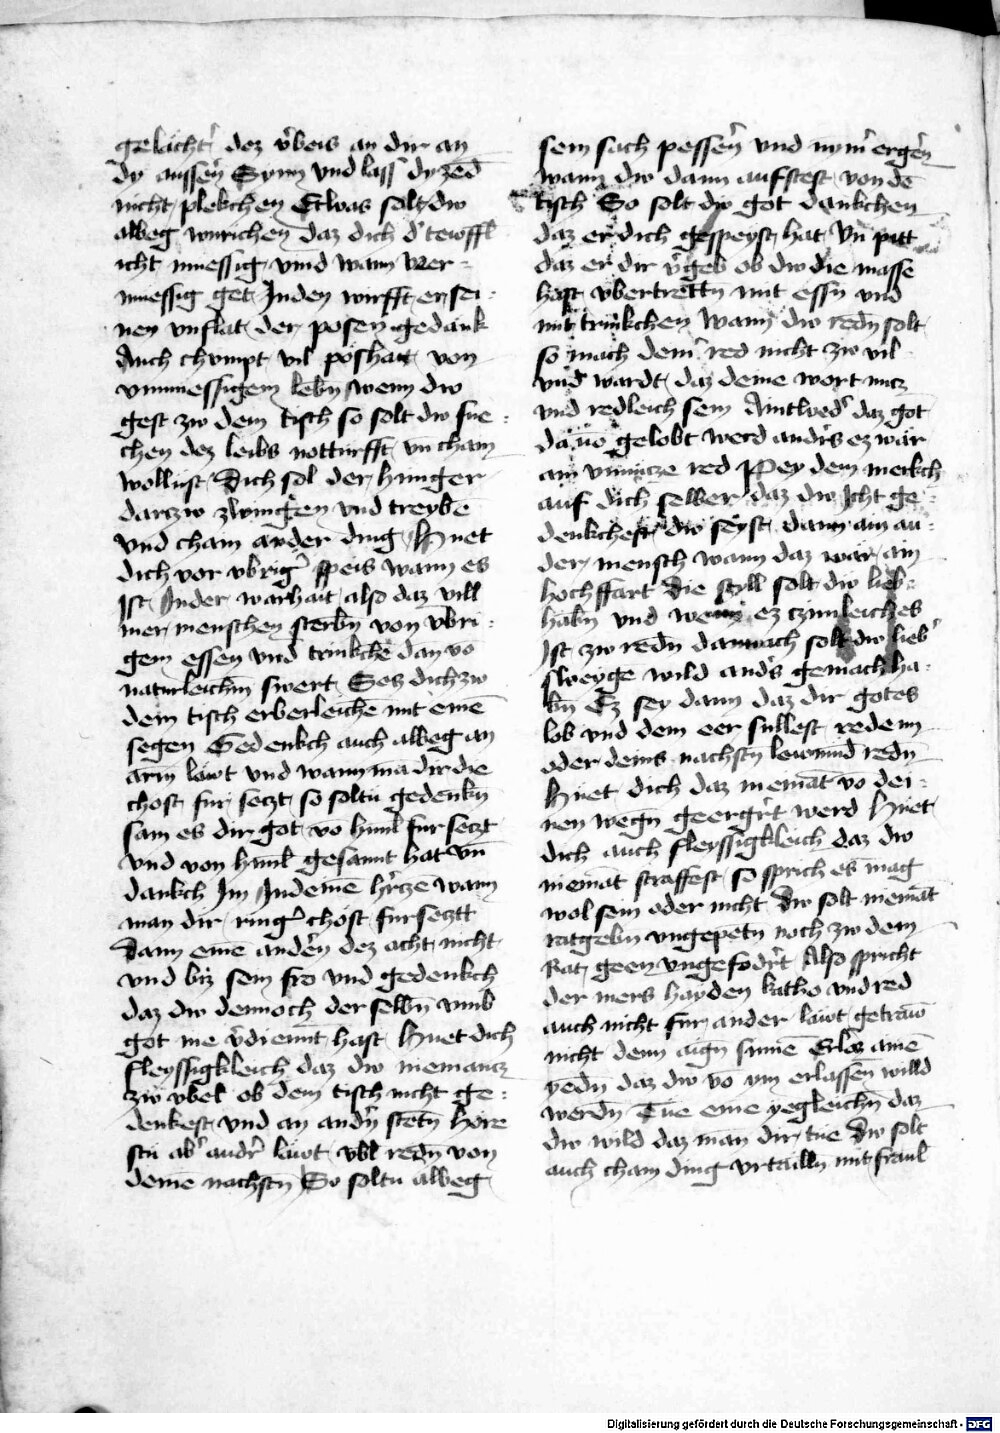 gelächt' dez v'beis an dir an
dy aussen' Synn vnd lass dy zēd
nicht plekchen Etwas solt dw
albeg wurichen daz dich d' tewffl
icht muessig vind wann wer
muessig get Inden wirfft er sei-
nen vnflat der posen gedänk
Auch chvmpt vil poshait von
vnmuessigem lebn wenn dw
gest zw dem tisch so solt dw sue-
chen dez leibs notturfft vn cham
wollust Dich sol der hunger
darczw zwingen vnd treybē
vnd cham ander ding Huet
dich vor vbrig' speis wann es
Ist Inder warhait also daz vill
mer menschen sterbn von vbri-
gem essen vnd trinkchē dan vō
naturleichm swert Secz dich zw
dem tisch erberleiche mit eine
segen Gedenkch auch albeg an
arm läwt vnd wann mā dir die
chost fur seczt so soltu gedenkn
sam es dir got vō himl fur seczt
vnd von himl gesannt hat vn
dankch Im Indeinē h'czē wann
man dir ring' chost fur secztt
Dann eine anden' dez acht nicht
vnd biz sein fro vnd gedenkch
daz dw dennoch der selbn vmb
got nie v'diennt hast Huet dich
fleyssigkleich daz dw niemancz
zw vbel ob dem tisch nicht ge-
denkest vnd an andn' stetn hore
stu ab' andr' läwt vbl redn von
deine nachstn So soltu albeg
sein sach pessen' vnd nym' ergen'
wann dw dann aufstest von dē
tisch So solt dw got dankchen
daz er dich gespeyst hat vn pitt
daz er dir v'geb ob dw die masse
hast vbertrettn mit essn vnd
mit trinkchen Wann dw redn solt
so mach dein' red nicht zw vil
vnd wardt daz deine wort nucz
vnd redleich sein Aintwed' daz got
dauō gelobt werd and's ez wär
ain vnnucze red Pey dem merkch
auf dich selber daz dw Icht ge-
denkchest dw seyst dann ain an-
der mensch wann daz wär ain
hochffart Die styll solt dw lieb-
habn vnd wenn ez czimleich es
Ist zw redn dannach solt dw lieb'
sweyge wild and's gemach ha-
bn Ez sey dann daz dir gotes
lob vnd dein eer sullest redenn
oder deins nachstn lewmund redn
Huet dich daz niemāt vo dei-
nen wegn geergr't werd Huet
dich auch fleyssigkleich daz dw
niemāt straffest so sprich es mag
wol sein oder nicht Dw solt niemāt
ratgebn vngepetn noch zw dem
Rat geen vngefodr't Also spricht
der mers hayden katho vnd red
auch nicht fur ander läwt getraw
nicht denn aign sinne Erlaz aine
yedn daz dw vo ym erlassen willd
werdn Tue eine yegleichn daz
dw wild daz man dir tue Dw solt
auch cham ding vrtailln mit fräul
Digitalisierung gefördert durch die Deutsche Forschungsgemeinschaft - DFG